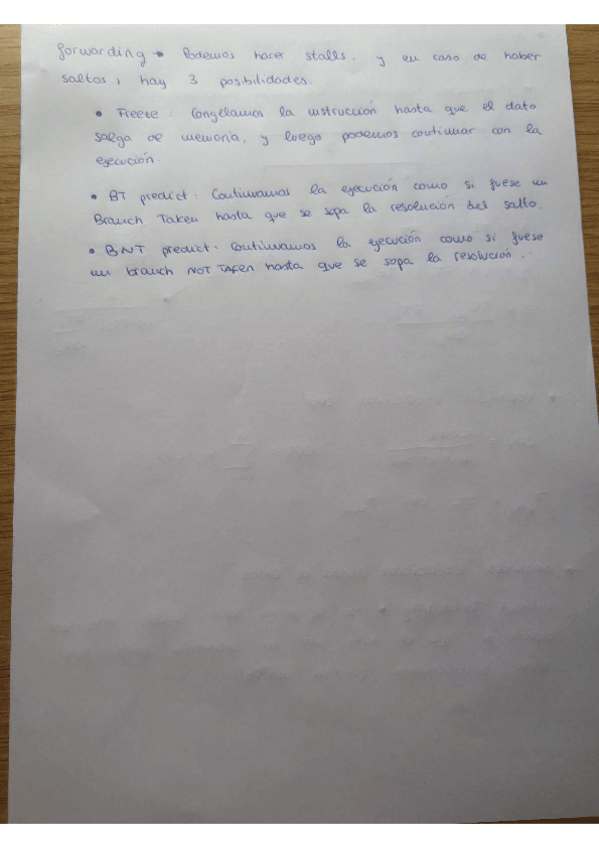 forwarding → Podemos hacer stalls. y en caso de haber
saltos, hay 3 posibilidades.
• Freeze: Congelamos la instrucción hasta que el dato
salga de memoria, y luego podemos continuar con la
ejecución.
• BT predict. Continuamos la ejecución como si fuese un
Branch Taken hasta que se sepa la resolución del salto.
• BNT predict. Continuamos la ejecución como si fuese
un branch NOT TAKEN hasta que se sepa la resolución.